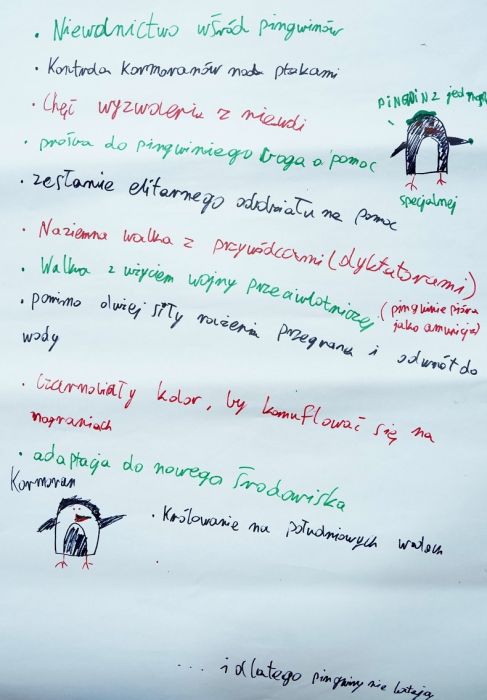 · Niewolnictwo wśród pingwinów
· Kontrola kormoranów nad ptakami
· Chęć wyzwolenia z niewoli
PiNGWiN z jednostki
· prośba do pingwiniego boga o pomoc
specjalnej
· zesłanie elitarnego oddziału na pomoc
· Naziemna walka z przywódcami (dyktatorami)
· Walka z użyciem wojny przeciwlotniczej
(pingwinie pióra
jako amunicja)
· pomimo dużej siły rażenia przegrana i odwrót do
wody
· Czarnobiały kolor, by kamuflować się na
nagraniach
· adaptacja do nowego środowiska
Kormoran
· Królowanie na południowych wodach
... i dlatego pingwiny nie latają